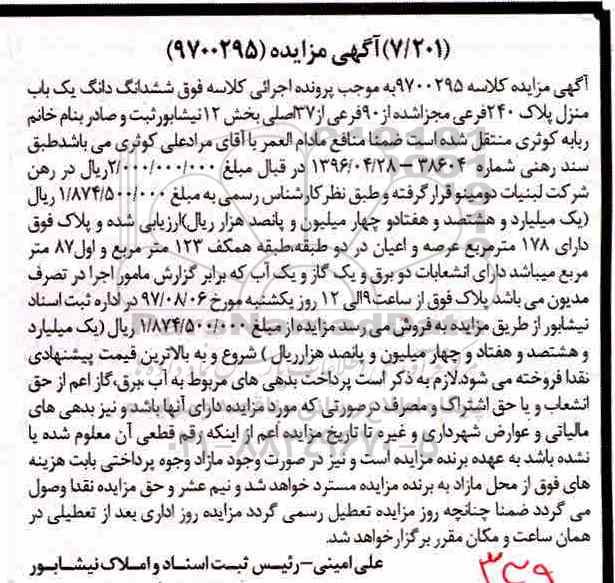 (۷/۲۰۱)آگهی مزایده (۹۷۰۰۲۹۵)
آگهی مزایده کلاسه ۹۷۰۰۲۹۵به موجب پرونده اجرائی کلاسه فوق ششدانگ دانگ یک باب
منزل پلاک ۲۴۰فرعی مجزاشده از۹۰فرعی از۳۷اصلی بخش ۱۲نیشابورثبت و صادر بنام خانم
ربابه کوثری منتقل شده است ضمنا منافع مادام العمر با آقای مرادعلی کوثری می باشدطبق
سند رهنی شماره ۳۸۶۰۴-۱۳۹۶/۰۴/۲۸ در قبال مبلغ ۲/۰۰۰/۰۰۰/۰۰۰ریال در رهن
شرکت لبنیات دومینو قرار گرفته و طبق نظر کارشناس رسمی به مبلغ ۱/۸۷۴/۵۰۰/۰۰۰ ریال
(یک میلیارد و هشتصد و هفتادو چهار میلیون و پانصد هزار ریال)ارزیابی شده و پلاک فوق
دارای ۱۷۸ مترمربع عرصه و اعیان در دو طبقه،طبقه همکف ۱۲۳ متر مربع و اول۸۷ متر
مربع میباشد دارای انشعابات دو برق و یک گاز و یک آب که برابر گزارش مامور اجرا در تصرف
مدیون می باشد پلاک فوق از ساعت۹الی ۱۲ روز یکشنبه مورخ ۹۷/۰۸/۰۶ در اداره ثبت اسناد
نیشابور از طریق مزایده به فروش می رسد مزایده از مبلغ ۱/۸۷۴/۵۰۰/۰۰۰ ریال (یک میلیارد
و هشتصد و هفتاد و چهار میلیون و پانصد هزارریال ) شروع و به بالاترین قیمت پیشنهادی
نقدا فروخته می شود.لازم به ذکر است پرداخت بدهی های مربوط به آب ،برق،گاز اعم از حق
انشعاب و یا حق اشتراک و مصرف درصورتی که مورد مزایده دارای آنها باشد و نیز بدهی های
مالیاتی و عوارض شهرداری و غیره تا تاریخ مزایده اعم از اینکه رقم قطعی آن معلوم شده یا
نشده باشد به عهده برنده مزایده است و نیز در صورت وجود مازاد وجوه پرداختی بابت هزینه
های فوق از محل مازاد به برنده مزایده مسترد خواهد شد و نیم عشر و حق مزایده نقدا وصول
می گردد ضمنا چنانچه روز مزایده تعطیل رسمی گردد مزایده روز اداری بعد از تعطیلی در
همان ساعت و مکان مقرر برگزار خواهد شد.
علی امینی-رئیس ثبت اسناد و املاک نیشابور